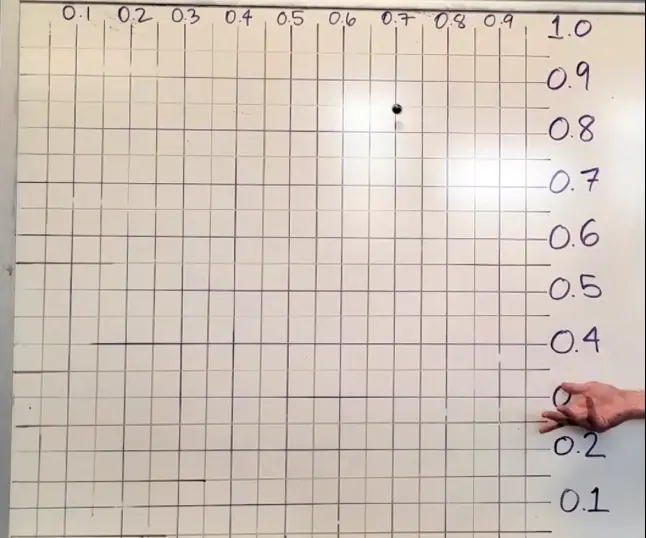 0.1 0.2 0.3 0.4 0.5 0.6 0.7 0.8 0.9
1.0
0.9
0.8
0.7
0.6
0.5
0.4
0
0.2
0.1